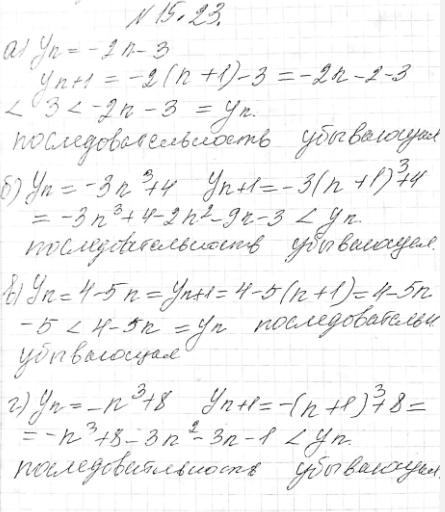 № 15.23.
а) yn = -2n-3
yn+1 = -2(n+1)-3 = -2n-2-3
< 3 < -2n-3 = yn.
последовательность убывающая
б) yn = -3n³+4 yn+1 = -3(n+1)³+4
= -3n³+4-2n²-9n-3 < yn.
последовательность убывающая.
в) yn = 4-5n = yn+1 = 4-5(n+1) = 4-5n
-5 < 4-5n = yn последовательн.
убывающая
г) yn = -n³+8 yn+1 = -(n+1)³+8 =
= -n³+8-3n²-3n-1 < yn
последовательность убывающая.